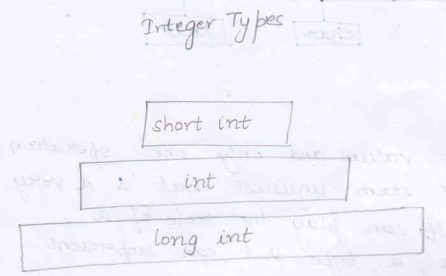 Integer Types
short int
int
long int